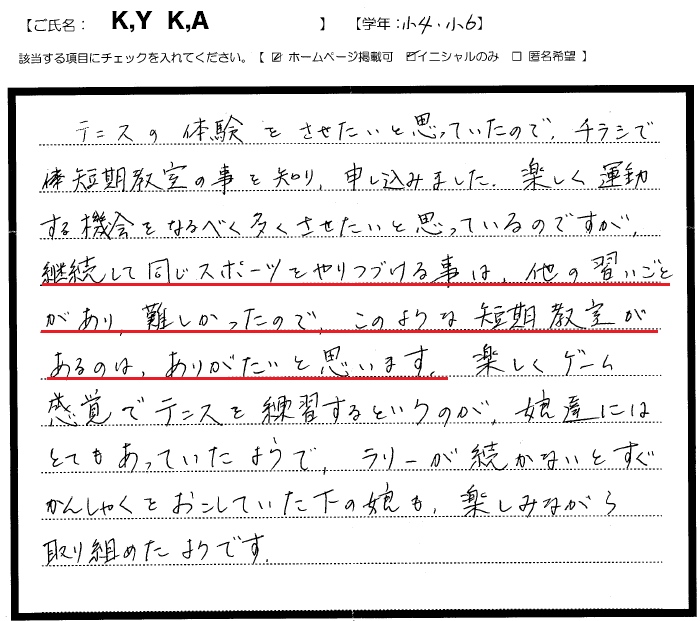 【ご氏名： K,Y K,A 】 【学年：小4・小6】
該当する項目にチェックを入れてください。【 ☑ ホームページ掲載可 ☑イニシャルのみ □ 匿名希望 】
テニスの体験をさせたいと思っていたので、チラシで
短期教室の事を知り、申し込みました。楽しく運動
する機会をなるべく多くさせたいと思っているのですが、
継続して同じスポーツをやりつづける事は、他の習いごと
があり、難しかったので、このような短期教室が
あるのは、ありがたいと思います。楽しくゲーム
感覚でテニスを練習するというのが、娘達には
とてもあっていたようで、ラリーが続かないとすぐ
かんしゃくをおこしていた下の娘も、楽しみながら
取り組めたようです。